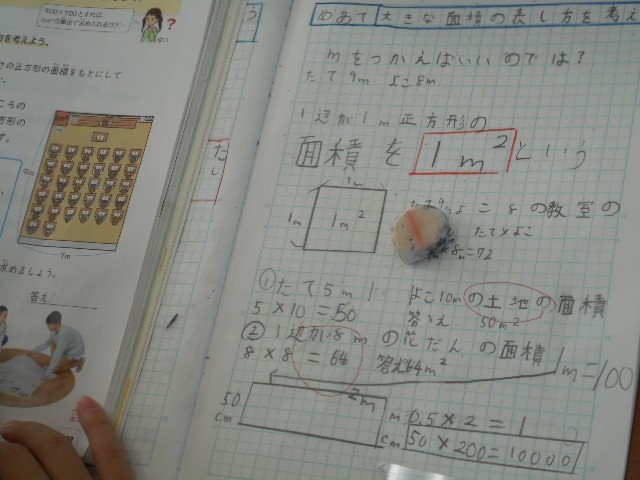 を考えよう。
の正方形の面積をもとにして
ころの
方形の
す。
9m
7m
求めましょう。
答え
めあて 大きな面積の表し方を考え
mをつかえばいいのでは?
たて9m よこ8m
1辺が1m正方形の
面積を 1m² という
1m
1m
1m²
よこ 8 の教室の
たて×よこ
=72
①たて5m よこ10mの土地の面積
5×10=50 答え 50m²
②1辺が8mの花だんの面積
8×8=64 答え64m²
1m=100
2m
50
cm
m 0.5×2=1
cm 50×200=10000